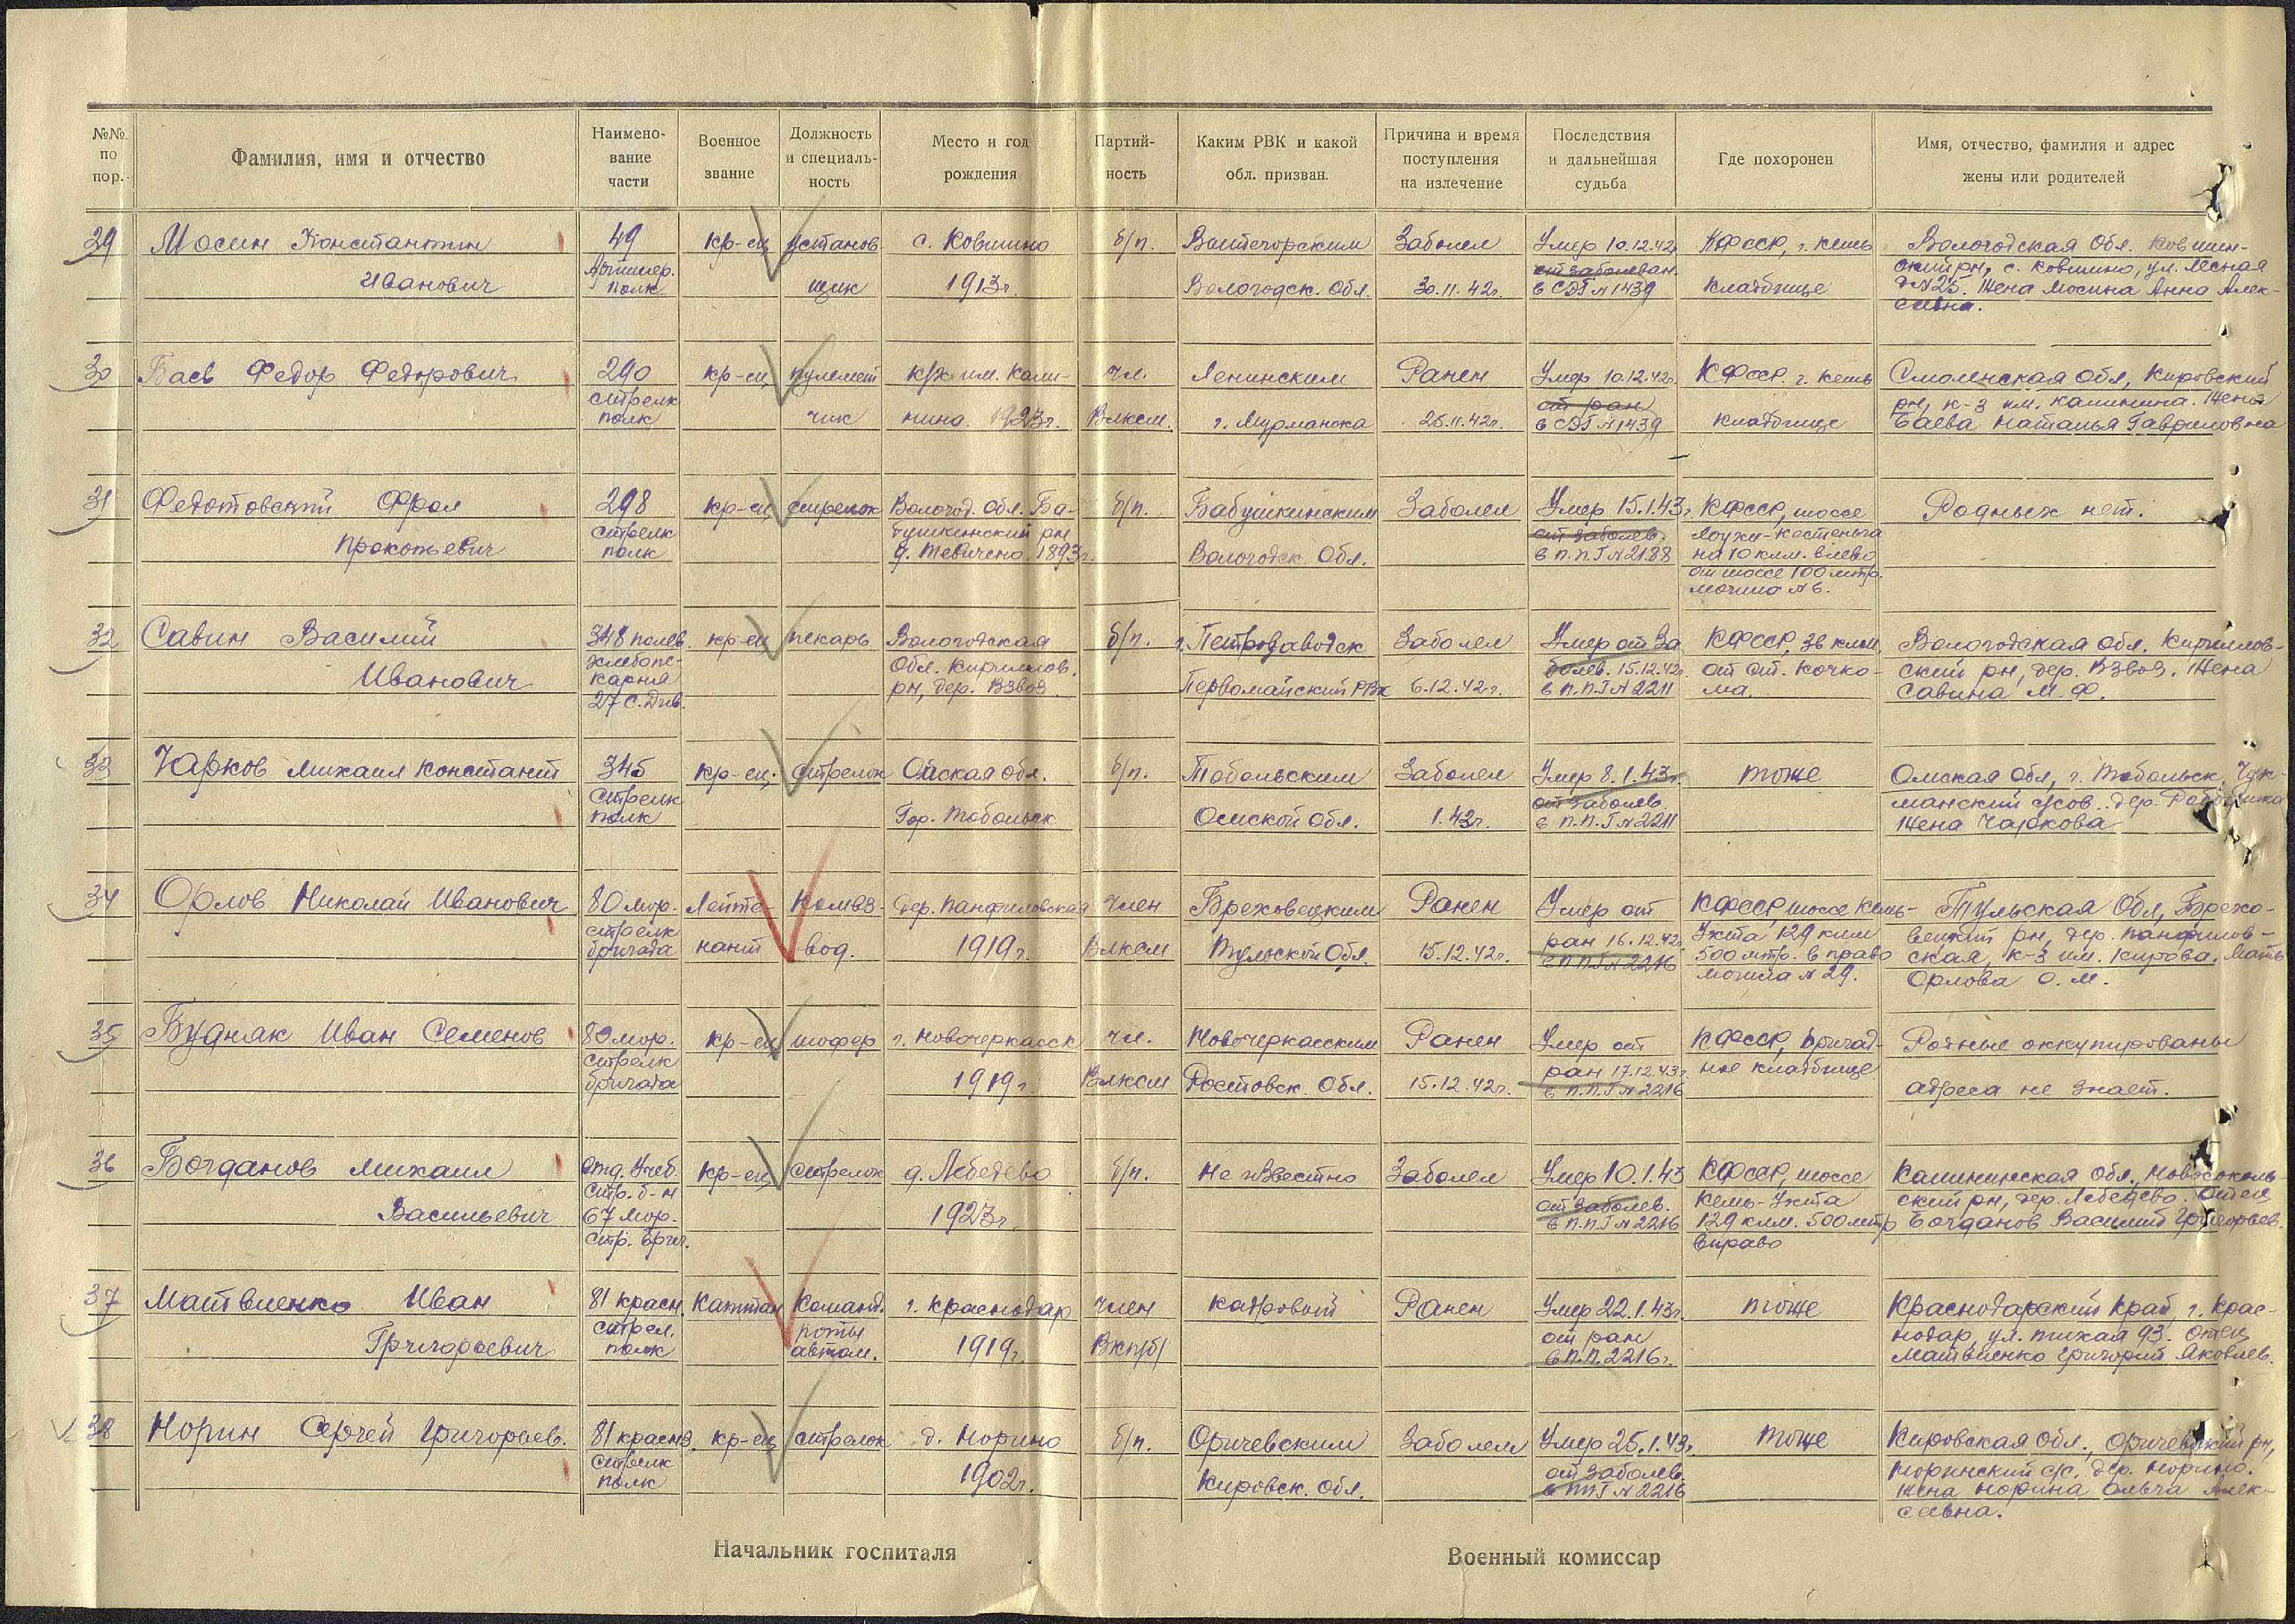 №№ по пор.
Фамилия, имя и отчество
Наимено-
вание
части
Военное
звание
Должность
и специаль-
ность
Место и год
рождения
Партий-
ность
Каким РВК и какой
обл. призван.
Причина и время
поступления
на излечение
Последствия
и дальнейшая
судьба
Где похоронен
Имя, отчество, фамилия и адрес
жены или родителей
29
Мосин Константин
Иванович
49
Артилер.
полк
кр-ец
установ
щик
с. Ковшино
1913г.
б/п.
Вытегорским
Вологодск. Обл.
Заболел
30.11.42г.
Умер 10.12.42
от заболеван.
в СЭГ №1439
КФССР, г. Кемь
кладбище
Вологодская Обл. Ковшин-
ский рн, с. Ковшино, ул. Лесная
д №25. Жена Мосина Анна Алек-
сеевна.
30
Баев Федор Федорович
290
стрелк
полк
кр-ец
пулемет
чик
к/х им. Кали-
нина. 1923г.
чл.
Влксм.
Ленинским
г. Мурманска
Ранен
26.11.42г.
Умер 10.12.42г.
от ран
в СЭГ №1439
КФССР. г. Кемь
кладбище
Смоленская Обл, Кировский
рн, к-з им. Калинина. Жена
Баева Наталья Гавриловна
31
Федотовский Фрол
Прокопьевич
298
стрелк
полк
кр-ец
стрелок
Вологод. Обл. Ба-
бушкинский рн
1893г.
б/п.
Бабушкинским
Вологодск. Обл.
Заболел
Умер 15.1.43г
от заболев.
в п.п.Г №2188
КФССР, шоссе
Лоухи-Кестеньга
на 10 клм. влево
от шоссе 100 мтр.
могила №6.
Родных нет.
32
Савин Василий
Иванович
348 полев.
хлебопе-
карня
27 с. див.
кр-ец
пекарь
Вологодская
Обл. Кириллов.
рн, дер. Взвоз
б/п.
г. Петрозаводск
Первомайский РВК
Заболел
6.12.42г.
Умер от за
болев. 15.12.42г.
в п.п.Г №2211
КФССР, 36 клм.
от ст. Кочко-
ма.
Вологодская Обл. Кириллов-
ский рн, дер. Взвоз. Жена
Савина М. Ф.
33
Чарков Михаил Констант
345
стрелк
полк
кр-ец.
стрелок
Омская Обл.
Гор. Тобольск
б/п.
Тобольским
Омской Обл.
Заболел
1.43г.
Умер 8.1.43г.
от заболев.
в п.п.Г №2211
тоже
Омская Обл, г. Тобольск,
манский с/сов. дер.
Жена Чаркова
34
Орлов Николай Иванович
80 мор.
стрелк
бригада
Лейте-
нант
Комвз-
вод.
дер. Панфиловская
1919г.
член
Влксм
Бреховецким
Тульской Обл.
Ранен
15.12.42г.
Умер от
ран 16.12.42г.
в ППГ №2216
КФССР, шоссе Кемь-
Ухта 129 клм
500 мтр. в право
могила №29.
Тульская Обл, Брехо-
вецкий рн, дер. Панфилов-
ская, к-з им. Кирова. Мать
Орлова О. М.
35
Будняк Иван Семенов
80 мор.
стрелк
бригада
кр-ец
шофер
г. Новочеркасск
1919г.
чл.
Влксм
Новочеркасским
Ростовск. Обл.
Ранен
15.12.42г.
Умер от
ран 17.12.43г.
в п.п.Г №2216
КФССР, Бригад-
ное кладбище
Родные оккупированы
адреса не знает.
36
Богданов Михаил
Васильевич
Отд. Учеб.
стр. б-н
67 Мор.
стр. бриг.
кр-ец
стрелок
д. Лебедево
1923г
б/п.
Не известно
Заболел
Умер 10.1.43
от заболев.
в п.п.Г №2216
КФССР, шоссе
Кемь-Ухта
129 клм. 500 мтр
вправо
Калининская Обл., Новосоколь-
ский рн, дер. Лебедево. Отец
Богданов Василий Григорьев.
37
Матвиенко Иван
Григорьевич
81 красн.
стрел.
полк
Капитан
Команд.
роты
автом.
г. Краснодар
1919г
член
Вкп(б)
кадровый
Ранен
Умер 22.1.43г.
от ран
в п.п. 2216г.
тоже
Краснодарский Край, г. Крас-
нодар, ул. Тихая 93. Отец
Матвиенко Григорий Яковлев.
38
Норин Сергей Григорьев.
81 красноз.
стрелк
полк
кр-ец
стрелок
д. Норино
1902г.
б/п.
Оричевским
Кировск. Обл.
Заболел
Умер 25.1.43г.
от заболев.
в ППГ №2216
тоже
Кировская Обл., Оричевский рн,
Норинский с/с, дер. Норино.
Жена Норина Ольга Алек-
сеевна.
Начальник госпиталя
Военный комиссар